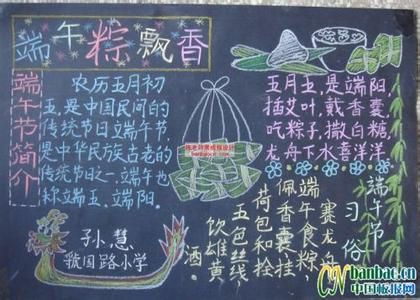 端午粽飘香
端午节简介
农历五月初
五,是中国民间的
传统节日端午节,
是中华民族古老的
传统节日之一。端午也
称端五、端阳。
孙慧
虢国路小学
五月五,是端阳,
插艾叶,戴香囊,
吃粽子,撒白糖,
龙舟下水喜洋洋
端午节习俗
赛龙舟
端午食粽,
佩香囊,挂
荷包和拴
五色丝线
饮雄黄
酒。
中国板报网